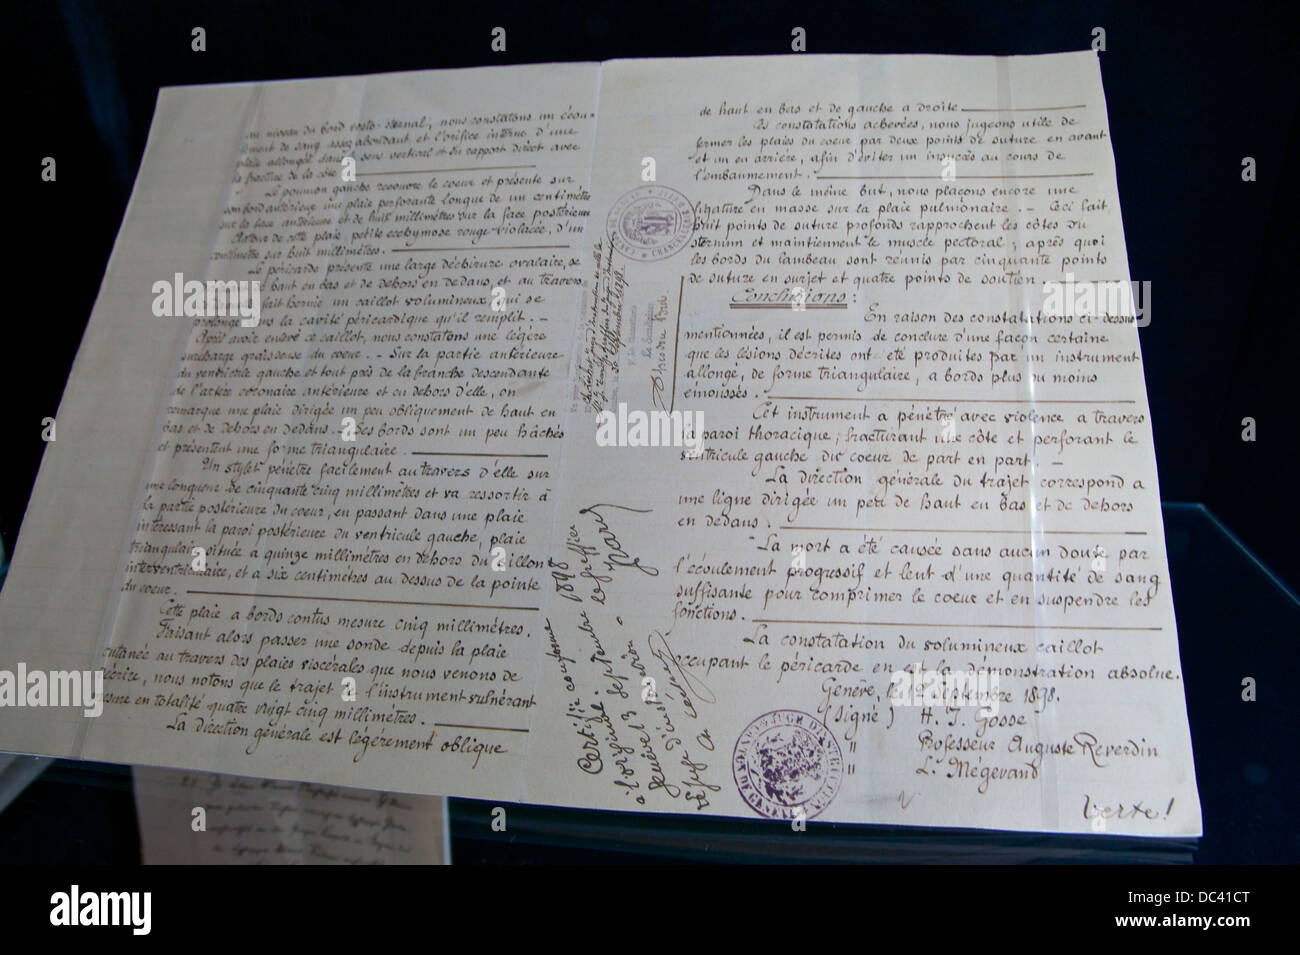 au niveau du bord costo-sternal, nous constatons un écou-
lement de sang assez abondant et l'orifice interne d'une
plaie allongée dans le sens vertical et en rapport direct avec
la fracture de la côte
Le poumon gauche recouvre le coeur et présente sur
son bord antérieur une plaie perforante longue de un centimètre
sur la face antérieure et de huit millimètres sur la face postérieure
Autour de cette plaie, petite ecchymose rouge-violacée, d'un
centimètre sur huit millimètres.
Le péricarde présente une large déchirure ovalaire,
de haut en bas et de dehors en dedans, et au travers
fait hernie un caillot volumineux, qui se
prolonge dans la cavité péricardique qu'il remplit. —
Après avoir enlevé ce caillot, nous constatons une légère
surcharge graisseuse du coeur. — Sur la partie antérieure
du ventricule gauche et tout près de la branche descendante
de l'artère coronaire antérieure et en dehors d'elle, on
remarque une plaie dirigée un peu obliquement de haut en
bas et de dehors en dedans. — Ses bords sont un peu hâchés
et présentent une forme triangulaire.
Un stylet pénètre facilement au travers d'elle sur
une longueur de cinquante cinq millimètres et va ressortir à
la partie postérieure du coeur, en passant dans une plaie
intéressant la paroi postérieure du ventricule gauche, plaie
triangulaire située à quinze millimètres en dehors du sillon
interventriculaire, et à six centimètres au dessus de la pointe
du coeur.
Cette plaie a bords contus mesure cinq millimètres.
Faisant alors passer une sonde depuis la plaie
cutanée au travers des plaies viscérales que nous venons de
décrire, nous notons que le trajet de l'instrument vulnérant
mesure en totalité quatre vingt cinq millimètres.
La direction générale est légèrement oblique
Certifié conforme
à l'original.
Genève, 13 septembre 1898
le greffier
de haut en bas et de gauche a droite
Les constatations achevées, nous jugeons utile de
fermer les plaies du coeur par deux points de suture en avant
et un en arrière, afin d'éviter un insuccès au cours de
l'embaumement.
Dans le même but, nous plaçons encore une
ligature en masse sur la plaie pulmonaire. — Ceci fait,
huit points de suture profonds rapprochent les côtes du
sternum et maintiennent le muscle pectoral; après quoi
les bords du lambeau sont réunis par cinquante points
de suture en surjet et quatre points de soutien
Conclusions:
En raison des constatations ci-dessus
mentionnées, il est permis de conclure d'une façon certaine
que les lésions décrites ont été produites par un instrument
allongé, de forme triangulaire, a bords plus ou moins
émoussés.
Cet instrument a pénétré avec violence a travers
la paroi thoracique, fracturant une côte et perforant le
ventricule gauche du coeur de part en part. —
La direction générale du trajet correspond a
une ligne dirigée un peu de haut en bas et de dehors
en dedans.
La mort a été causée sans aucun doute par
l'écoulement progressif et lent d'une quantité de sang
suffisante pour comprimer le coeur et en suspendre les
fonctions.
La constatation du volumineux caillot
occupant le péricarde en est la démonstration absolue.
Genève, le 12 septembre 1898.
(Signé) H. J. Gosse
" Professeur Auguste Reverdin
" L. Mégevand
Verte!
alamy
www.alamy.com
DC41CT